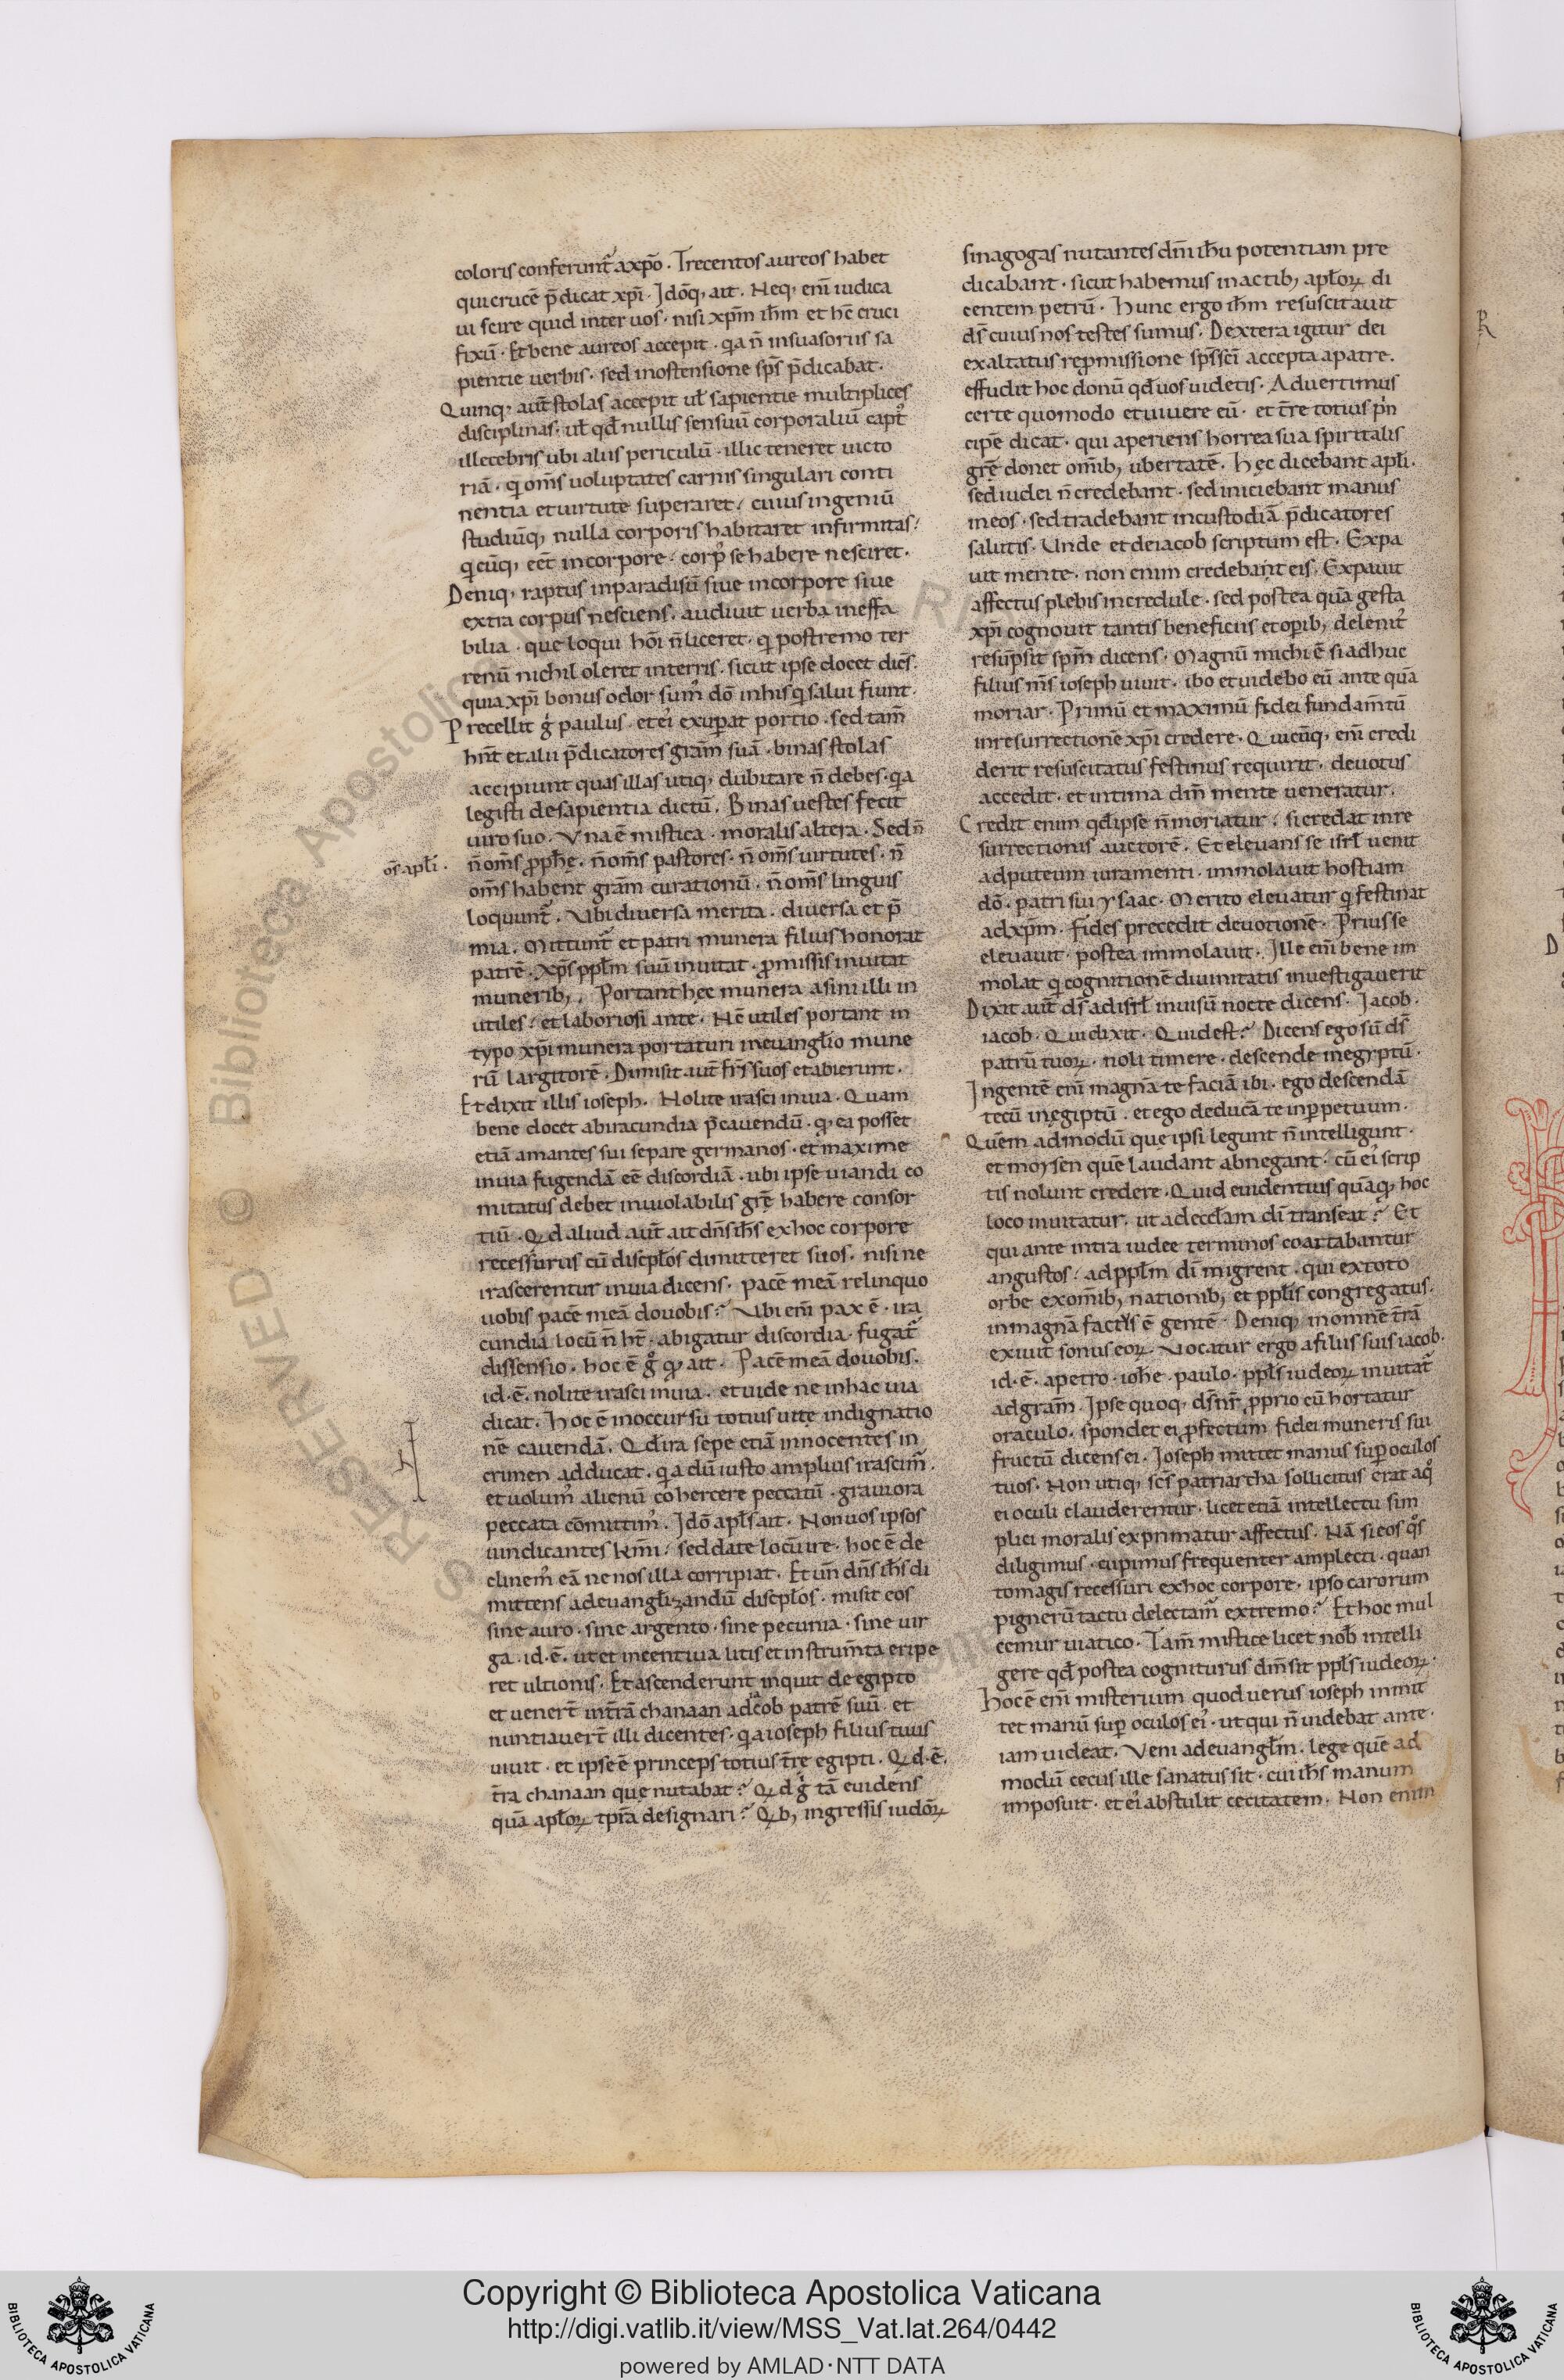 coloris conferunt᷑ axp̄o. Trecentos aureos habet
qui crucē p̄dicat xp̄i. Jdōq, ait. Neq, eni̅ iudica
ui scire quid inter uos. nisi xp̄m ih̄m et hc̄ cruci
fixū. Et bene aureos accepit. qa n̄ insuasoriis sa
pientie uerbis. sed inostensione sp̄s p̄dicabat.
Quinq, aut̄ stolas accepit ul̄ sapientie multiplices
disciplinas. ul̄ qd̄ nullis sensuū corporaliū capt᷑
illecebris ubi aliis periculū. illic teneret uicto
riā. qi om̄s uoluptates carnis singulari conti
nentia et uirtute superaret. cuius ingeniū
studiūq, nulla corporis habitaret infirmitas.
qi cūq, eēt incorpore. corp᷒ se habere nesciret.
Deniq, raptus inparadisū siue incorpore siue
extra corpus nesciens. audiuit uerba ineffa
bilia. que loqui hōi n̄ liceret. qi postremo ter
renū nichil oleret interris. sicut ipse docet dic̄s.
quia xp̄i bonus odor sum᷒ dō inhis qi salui fiunt.
Precellit g̊ paulus. et ei᷒ exup̱at portio. sed tam̄
hn̄t et alii p̄dicatores gr̄am suā. binas stolas
accipiunt quas illas utiq, dubitare n̄ debes. qa
legisti desapientia dictū. Binas uestes fecit
uiro suo. Una ē mistica. moralis altera. Sed n̄
os̄ apl̄i.
n̄ om̄s proph̄ę. n̄ om̄s pastores. n̄ om̄s uirtutes. n̄
om̄s habent gr̄am curationū. n̄ om̄s linguis
loquunt᷑. Ubi diuersa merita. diuersa et p̄
mia. Mittunt᷑ et patri munera filius honorat
patrē. xp̄s ppl̄m suū inuitat. promissis inuitat
munerib,. Portant hęc munera asini illi in
utiles. et laboriosi ante. Nc̄ utiles portant in
typo xp̄i munera portaturi ineuangl̄io mune
rū largitorē. Dimisit aut̄ fr̄s suos et abierunt.
Et dixit illis ioseph. Nolite irasci inuia. Quam
bene docet abiracundia p̄cauendū. q, ea posset
etiā amantes sui separe germanos. et maxime
inuia fugendā eē discordiā. ubi ipse uiandi co
mitatus debet inuiolabilis gr̄ę habere consor
tiū. Qd aliud aut̄ ait dn̄s ih̄s exhoc corpore
recessurus cū discpl̄os dimitteret suos. nisi ne
irascerentur inuia dicens. pacē meā relinquo
uobis pacē meā douobis? Ubi eni̅ pax ē. ira
cundia locū n̄ ht̄. abigatur discordia. fugat᷑
dissensio. hoc ē g̊ q ait. Pacē meā douobis.
id.ē. nolite irasci inuia. et uide ne inhac uia
dicat. Hoc ē inoccursu totius uitę indignatio
nē cauendā. Qd ira sepe etiā innocentes in
crimen adducat. qa dū iusto amplius irascim᷑.
et uolum᷒ alienū cohercere peccatū. grauiora
peccata cōmittim᷒. Jdō apl̄s ait. Non uos ipsos
uindicantes km̄i. sed date locū irę. hoc ē de
clinem᷒ eā ne nos illa corripiat. Et un̄ dn̄s ih̄s di
mittens adeuangl̄izandū discpl̄os. misit eos
sine auro. sine argento. sine pecunia. sine uir
ga. id.ē. ut et incentiua litis et instrum̄ta eripe
ret ultionis. Et ascenderunt inquit de egipto
et uenert̄ int̄rā chanaan ad iacob patrē suū. et
nuntiauert̄ illi dicentes. qa ioseph filius tuus
uiuit. et ipse ē princeps totius t̄re egipti. Qd.ē.
t̄ra chanaan quę nutabat? Qd g̊ tā euidens
quā apl̄oꝝ tp̄ra designari? Qb, ingressis iudōꝝ
sinagogas nutantes dm̄ ih̄u potentiam pre
dicabant. sicut habemus inactib, apl̄oꝝ di
centem petrū. Hunc ergo ih̄m resuscitauit
ds̄ cuius nos testes sumus. Dextera igitur dei
exaltatus repromissione sp̄s sc̄i accepta apatre.
effudit hoc donū qd̄ uos uidetis. Aduertimus
certe quomodo et uiuere eū. et t̄re totius p̊n
cipē dicat. qui aperiens horrea sua spiritalis
gr̄ę donet om̄ib, ubertatē. Hęc dicebant apl̄i.
sed iudei n̄ credebant. sed iniciebant manus
ineos. sed tradebant incustodiā p̄dicatores
salutis. Unde et deiacob scriptum est. Expa
uit mente. non enim credebant eis. Expauit
affectus plebis incredule. sed postea quā gesta
xp̄i cognouit tantis beneficiis et op̱ib, delenit᷒
resūpsit sp̄m dicens. Magnū michi ē si adhuc
filius m̄s ioseph uiuit. ibo et uidebo eū ante quā
moriar. Primū et maximū fidei fundam̄tū
inresurrectionē xp̄i credere. Quicūq, eni̅ credi
derit resuscitatus festinus requirit. deuotus
accedit. et intima dm̄ mente ueneratur.
Credit enim qd̄ ipse n̄ moriatur. si credat inre
surrectionis auctorē. Et eleuans se isrl̄ uenit
adputeum iuramenti. immolauit hostiam
dō. patri sui ysaac. Merito eleuatur qi festinat
adxp̄m. Fides precedit deuotionē. Prius se
eleuauit. postea immolauit. Ille eni̅ bene im
molat qi cognitionē diuinitatis inuestigauerit
Dixit aut̄ ds̄ adisrl̄ inuisū nocte dicens. Iacob.
iacob. Qui dixit. Quid est? Dicens ego sū ds̄
patrū tuoꝝ. noli timere. descende inegyptū.
Ingentē eni̅ magnā te faciā ibi. ego descendā
tecū inęgiptū. et ego deducā te inp̱petuum.
Quēm admodū que ipsi legunt n̄ intelligunt.
et moysen quē laudant abnegant. cū ei᷒ scrip
tis nolunt credere. Quid euidentius quāq, hoc
loco inuitatur. ut adeccl̄am dī transeat? Et
qui ante intra iudeę terminos coartabantur
angustos. adppl̄m dī migrent. qui extoto
orbe exom̄ib, nationib, et ppl̄is congregatus.
inmagnā factus ē gentē. Deniq, inomnē t̄rā
exiuit sonus eoꝝ. Uocatur ergo afiliis suis iacob.
id.ē. apetro. ioh̄e. paulo. ppl̄s iudeoꝝ inuitat᷑
adgr̄am. Ipse quoq, ds̄ nr̄ proprio eū hortatur
oraculo. spondet ei profectum fidei muneris sui
fructū dicens ei. Ioseph mittet manus sup̱ oculos
tuos. Non utiq, sc̄s patriarcha sollicitus erat aq̊
ei oculi clauderentur. licet etiā intellectu sim
plici moralis exprimatur affectus. Nā si eos q̊s
diligimus. cupimus frequenter amplecti. quan
tomagis recessuri exhoc corpore. ipso carorum
pignerū tactu delectam᷑ extremo? Et hoc mul
cemur uiatico. Tam̄ mistice licet nob̄ intelli
gere qd̄ postea cogniturus dm̄ sit ppl̄s iudeoꝝ.
Hoc ē eni̅ misterium quod uerus ioseph inmit
tet manū sup̱ oculos ei᷒. ut qui n̄ uidebat ante.
iam uideat. Veni adeuangl̄m. lege quē ad
modū cecus ille sanatus sit. cui ih̄s manum
imposuit. et ei᷒ abstulit cecitatem. Non enim
Copyright © Biblioteca Apostolica Vaticana
http://digi.vatlib.it/view/MSS_Vat.lat.264/0442
powered by AMLAD·NTT DATA
BIBLIOTECA APOSTOLICA VATICANA
BIBLIOTECA APOSTOLICA VATICANA